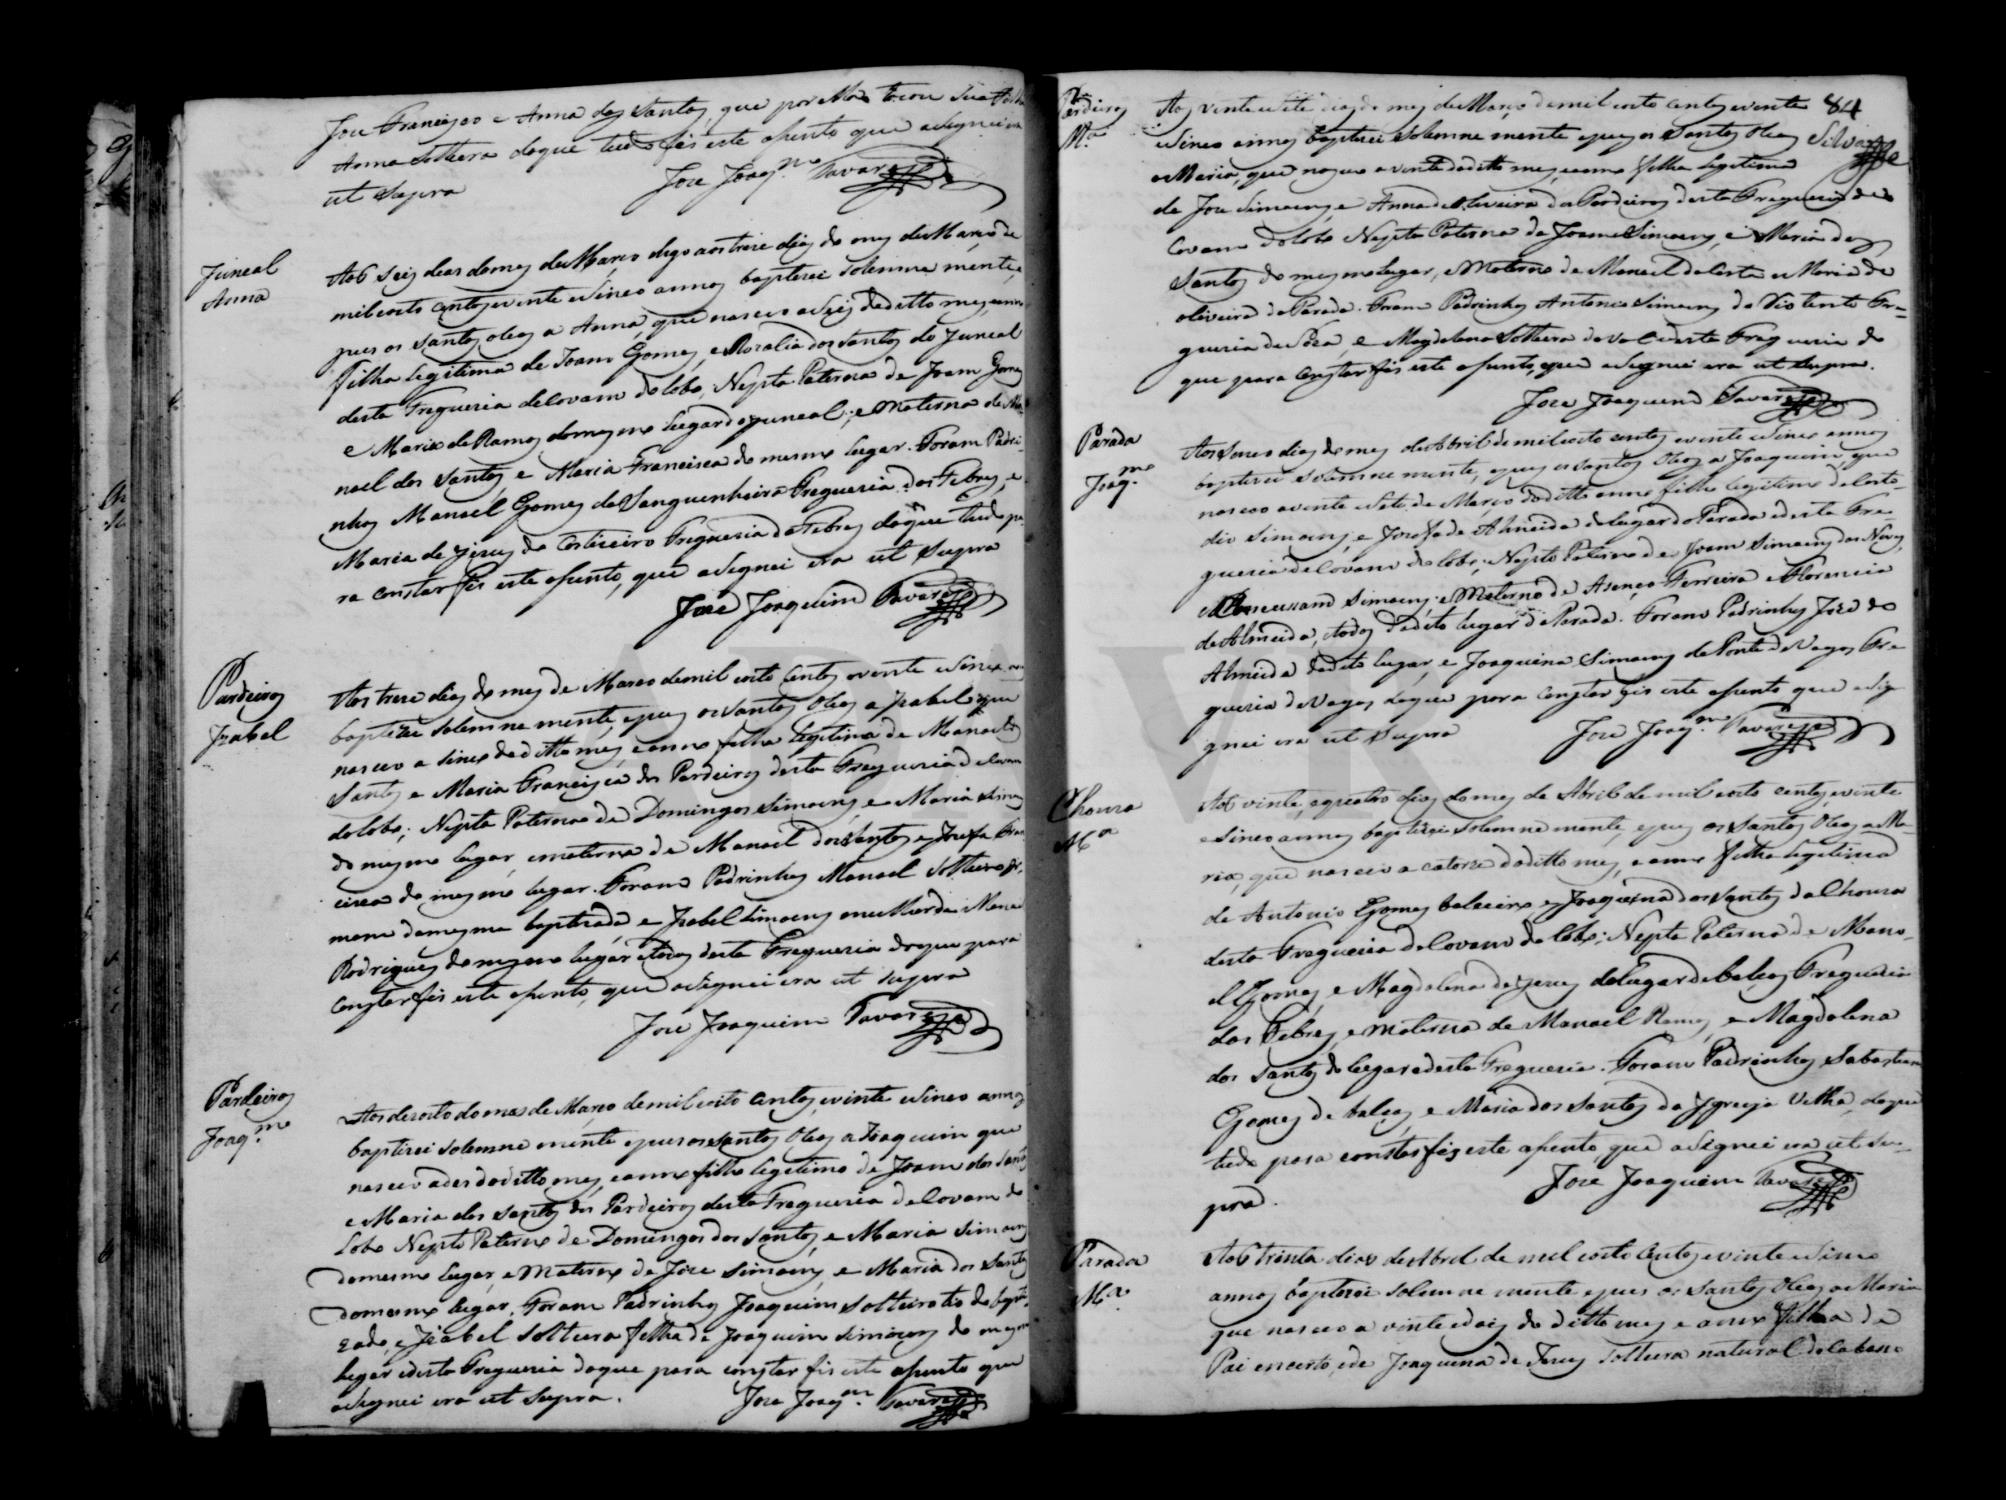 Joze Francisco e Anna dos Santos, que por Mco tocou sua
Anna Solteira doque tudo fis este asento que asignei
ut supra Joze Joaq.m Tavares
Juncal
Anna
Aos seis dias do mes de Março digo aos treze dias do mes de Março de
mil oito centos e vinte e sinco annos baptizei solemne mente, e
pus os santos oleos a Anna, que nasceo a seis do ditto mes, e anno
filha legitima de Joam Gomes, e Rozalia dos Santos do Juncal
desta Freguezia de Covam do Lobo, Nepta Paterna de Joam Gomes
e Maria de Ramos do mesmo lugar do Juncal; e Materna de Ma-
noel dos Santos, e Maria Francisca do mesmo lugar. Foram Padri-
nhos Manoel Gomes da Sanguinheira Freguezia das Febres, e
Maria de Jezus da Freguezia das Febres doque tudo pa-
ra constar fis este asento, que asignei era ut supra
Joze Joaquim Tavares
Pardeiros
Izabel
Aos treze dias do mes de Março de mil oito centos e vinte e sinco annos
baptizei solemne mente, e pus os santos oleos a Izabel que
nasceo a sinco do ditto mes, e anno filha legitima de Manoel dos
Santos e Maria Francisca dos Pardeiros desta Freguezia de Covam
do Lobo; Nepta Paterna de Domingos Simoens, e Maria Simoens
do mesmo lugar, e materna de Manoel dos Santos e Josefa Fran-
cisca do mesmo lugar. Foram Padrinhos Manoel Solteiro Ir-
mam da mesma baptizada e Izabel Simoens mulher de Manoel
Rodrigues do mesmo lugar e todos desta Freguezia doque para
constar fis este asento, que asignei era ut supra
Joze Joaquim Tavares
Pardeiros
Joaq.m
Aos dezoito do mes de Março de mil oito centos, e vinte e sinco annos
baptizei solemne mente e pus os santos oleos a Joaquim que
nasceo a des do ditto mes, e anno filho legitimo de Joam dos Santos
e Maria dos Santos dos Pardeiros desta Freguezia de Covam do
Lobo Nepto Paterno de Domingos dos Santos, e Maria Simoens
do mesmo lugar, e Materno de Joze Simoens, e Maria dos Santos
do mesmo lugar. Foram Padrinhos Joaquim solteiro tio do bapti-
zado, e Izabel solteira filha de Joaquim Simoens do mesmo
lugar e desta Freguezia doque para constar fis este asento que
asignei era ut supra. Joze Joaq.m Tavares
Pardeiros
M.a
Aos vinte e sete dias do mes de Março de mil oito centos e vinte 84
e sinco annos baptizei solemne mente e pus os santos oleos Silva
a Maria, que nasceo a vinte do ditto mes, e anno filha legitima
de Joze Simoens, e Anna de Oliveira dos Pardeiros desta Freguezia de
Covam do Lobo Nepta Paterna de Joam Simoens, e Maria dos
Santos do mesmo lugar, e Materna de Manoel da Costa e Maria de
Oliveira da Parada. Foram Padrinhos Antonio Simoens do Rio tinto Fre-
guezia de Soza, e Magdalena Solteira desta Freguezia do
que para constar fis este asento, que asignei era ut supra.
Joze Joaquim Tavares
Parada
Joaq.m
Aos sinco dias do mes de Abril de mil oito centos e vinte e sinco annos
baptizei solemne mente, e pus os santos oleos a Joaquim, que
nasceo a vinte e sete de Março do ditto anno filho legitimo de Custo-
dio Simoens, e Josefa de Almeida do lugar da Parada e desta Fre-
guezia de Covam do Lobo; Nepto Paterno de Joam Simoens das Neves,
e Simoens; e Materno de Asenço Ferreira e Florencia
de Almeida, todos do dito lugar da Parada. Foram Padrinhos Joze de
Almeida do dito lugar, e Joaquina Simoens da Ponte de Vagos Fre-
guezia de Vagos, doque para constar fis este asento que asig-
nei era ut supra Joze Joaq.m Tavares
Choura
M.a
Aos vinte, e quatro dias do mes de Abril de mil oito centos, e vinte
e sinco annos baptizei solemne mente, e pus os santos oleos a Ma-
ria, que nasceo a catorze do ditto mes, e anno filha legitima
de Antonio Gomes e Joaquina dos Santos da Choura
desta Freguezia de Covam do Lobo; Nepta Paterna de Mano-
el Gomes, e Magdalena de Jezus do lugar de Balsas Freguezia
das Febres, e materna de Manoel Ramos, e Magdalena
dos Santos do lugar e desta Freguezia. Foram Padrinhos Sabastiam
Gomes de Balsas, e Maria dos Santos da Igreija Velha, doque
tudo para constar fis este asento, que asignei era ut su-
pra. Joze Joaquim Tavares
Parada
M.a
Aos trinta dias de Abril de mil oito centos e vinte e sinco
annos baptizei solemne mente e pus os santos oleos a Maria
que nasceo a vinte e dois do ditto mes e anno filha de
Pai encerto, e de Joaquina de Jezus solteira natural
ADAVR